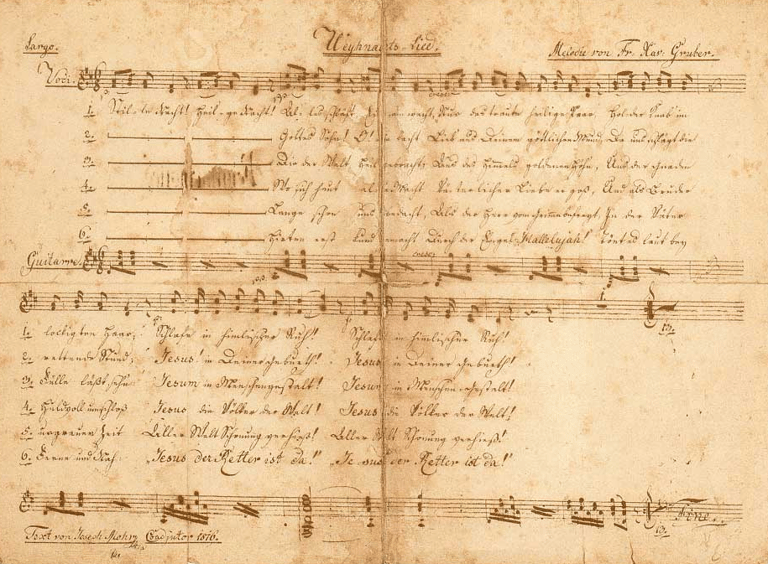 Largo. Weyhnachts-Lied. Melodie von Fr. Xav. Gruber.
Voci.
1. Stil-le Nacht! Heil-ge Nacht! Al-les schläft wacht, Nur das traute heilige Paar. Holder Knab im
2. Gottes Sohn! O! lacht Lieb aus Deinem göttlichen Mund, Da uns schlägt die
3. Die der Welt Heil gebracht, Aus des Himmels goldenen Höhn, Aus der Gnaden
4. Wo sich heut alle Macht Väterlicher Liebe ergoß, Und als Bruder
5. Lange schon uns bedacht, Als der Herr vom Grimme befreyt, In der Väter
6. Hirten erst kund gemacht Durch der Engel Hallelujah! Tönt es laut bey
Guitarre.
cresc:
1. lockigten Haar, Schlafe in himmlischer Ruh! Schlafe in himmlischer Ruh!
2. rettende Stund. Jesus! in Deiner Geburth! Jesus in Deiner Geburth!
3. Fülle läßt sehn Jesum in Menschengestalt! Jesum in Menschengestalt!
4. huldvoll umschloß Jesus die Völker der Welt! Jesus die Völker der Welt!
5. urgrauer Zeit Aller Welt Schonung verhieß! Aller Welt Schonung verhieß!
6. Ferne und Nah „Jesus der Retter ist da!" „Jesus der Retter ist da!"
Fine.
Text von Joseph Mohr Coadjutor 1816.